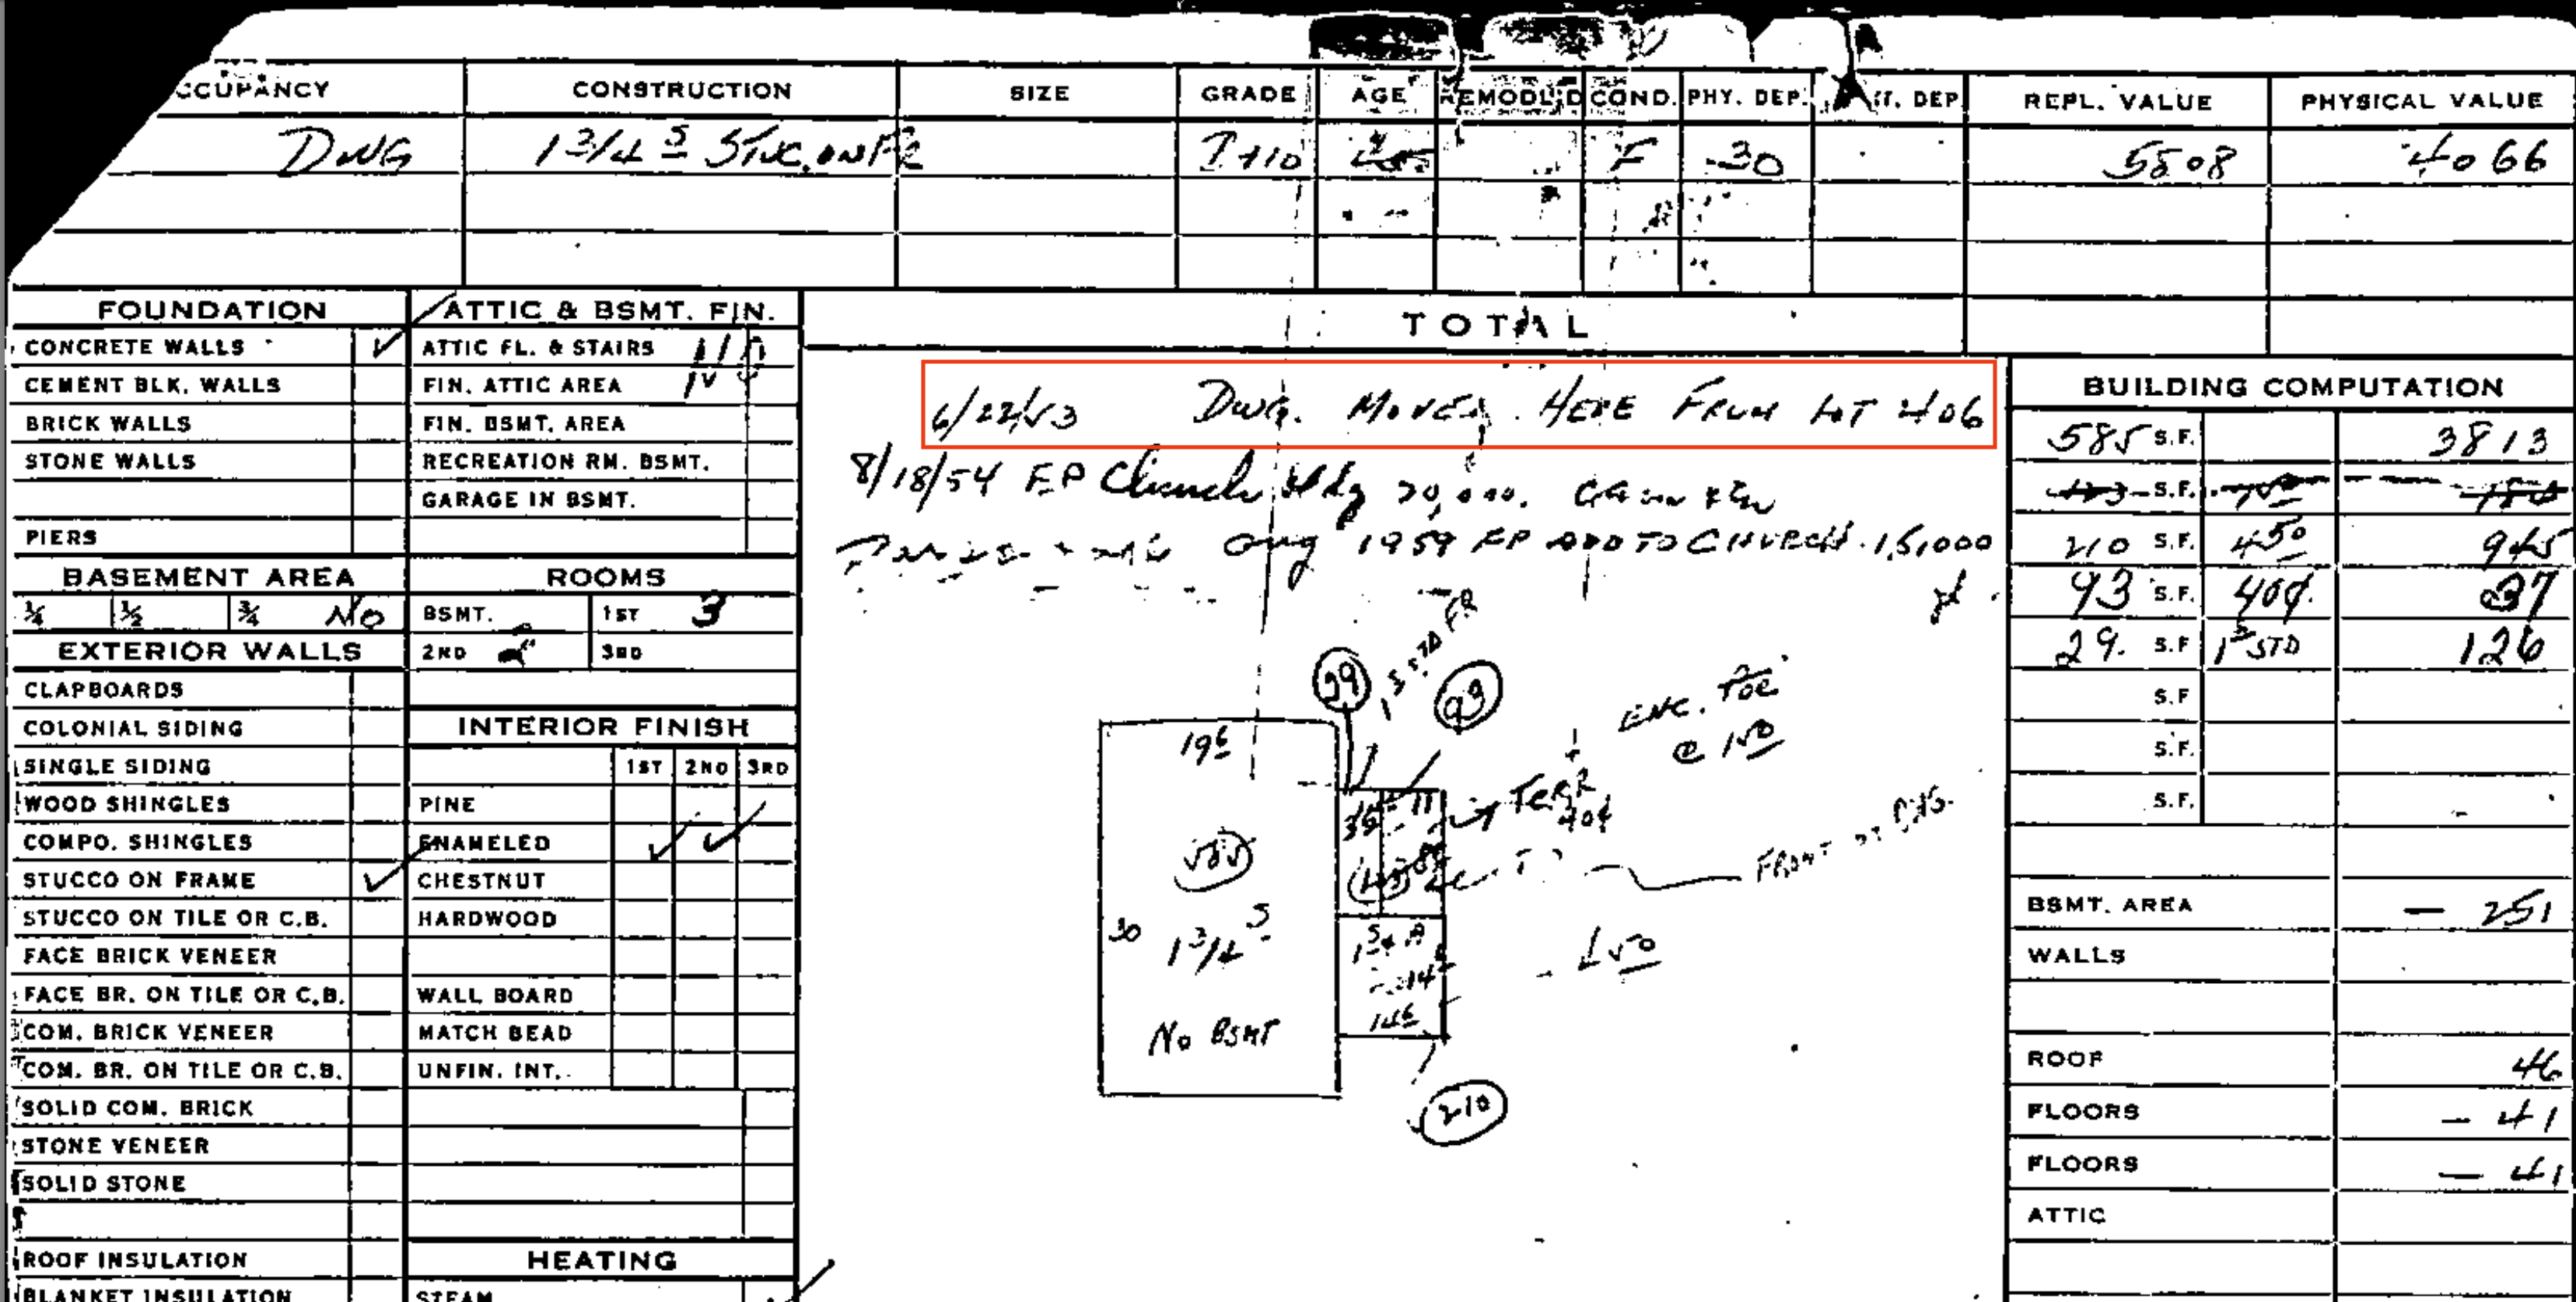 CCUPANCY CONSTRUCTION SIZE GRADE AGE REMODL'D COND. PHY. DEP. DEP REPL. VALUE PHYSICAL VALUE
DWG 1 3/4 S STUC. ON FR F 30 5508 4066
TOTAL
FOUNDATION
CONCRETE WALLS ✓
CEMENT BLK. WALLS
BRICK WALLS
STONE WALLS
PIERS
BASEMENT AREA
¼ ½ ¾ No
EXTERIOR WALLS
CLAPBOARDS
COLONIAL SIDING
SINGLE SIDING
WOOD SHINGLES
COMPO. SHINGLES
STUCCO ON FRAME ✓
STUCCO ON TILE OR C.B.
FACE BRICK VENEER
FACE BR. ON TILE OR C.B.
COM. BRICK VENEER
COM. BR. ON TILE OR C.B.
SOLID COM. BRICK
STONE VENEER
SOLID STONE
ROOF INSULATION
BLANKET INSULATION
ATTIC & BSMT. FIN.
ATTIC FL. & STAIRS
FIN. ATTIC AREA
FIN. BSMT. AREA
RECREATION RM. BSMT.
GARAGE IN BSMT.
ROOMS
BSMT. 1ST 3
2ND 3RD
INTERIOR FINISH
1ST 2ND 3RD
PINE
ENAMELED ✓ ✓
CHESTNUT
HARDWOOD
WALL BOARD
MATCH BEAD
UNFIN. INT.
HEATING
STEAM
6/22/53 DWG. MOVED HERE FROM LOT 406
8/18/54 E.P Church Bldg 20,000.
Aug 1959 EP ADD TO CHURCH 15,000
29 93
ENC. POC
@ 1 50
19 6
TERR
40¢
585
FRONT OF DWG.
30 1 3/4 S
4 50
14 6
No BSMT
210
BUILDING COMPUTATION
585 S.F. 3813
S.F.
210 S.F. 4 50 945
93 S.F. 40¢ 37
29 S.F 1 S STD 126
S.F
S.F.
S.F.
BSMT. AREA — 251
WALLS
ROOF 46
FLOORS — 41
FLOORS — 41
ATTIC